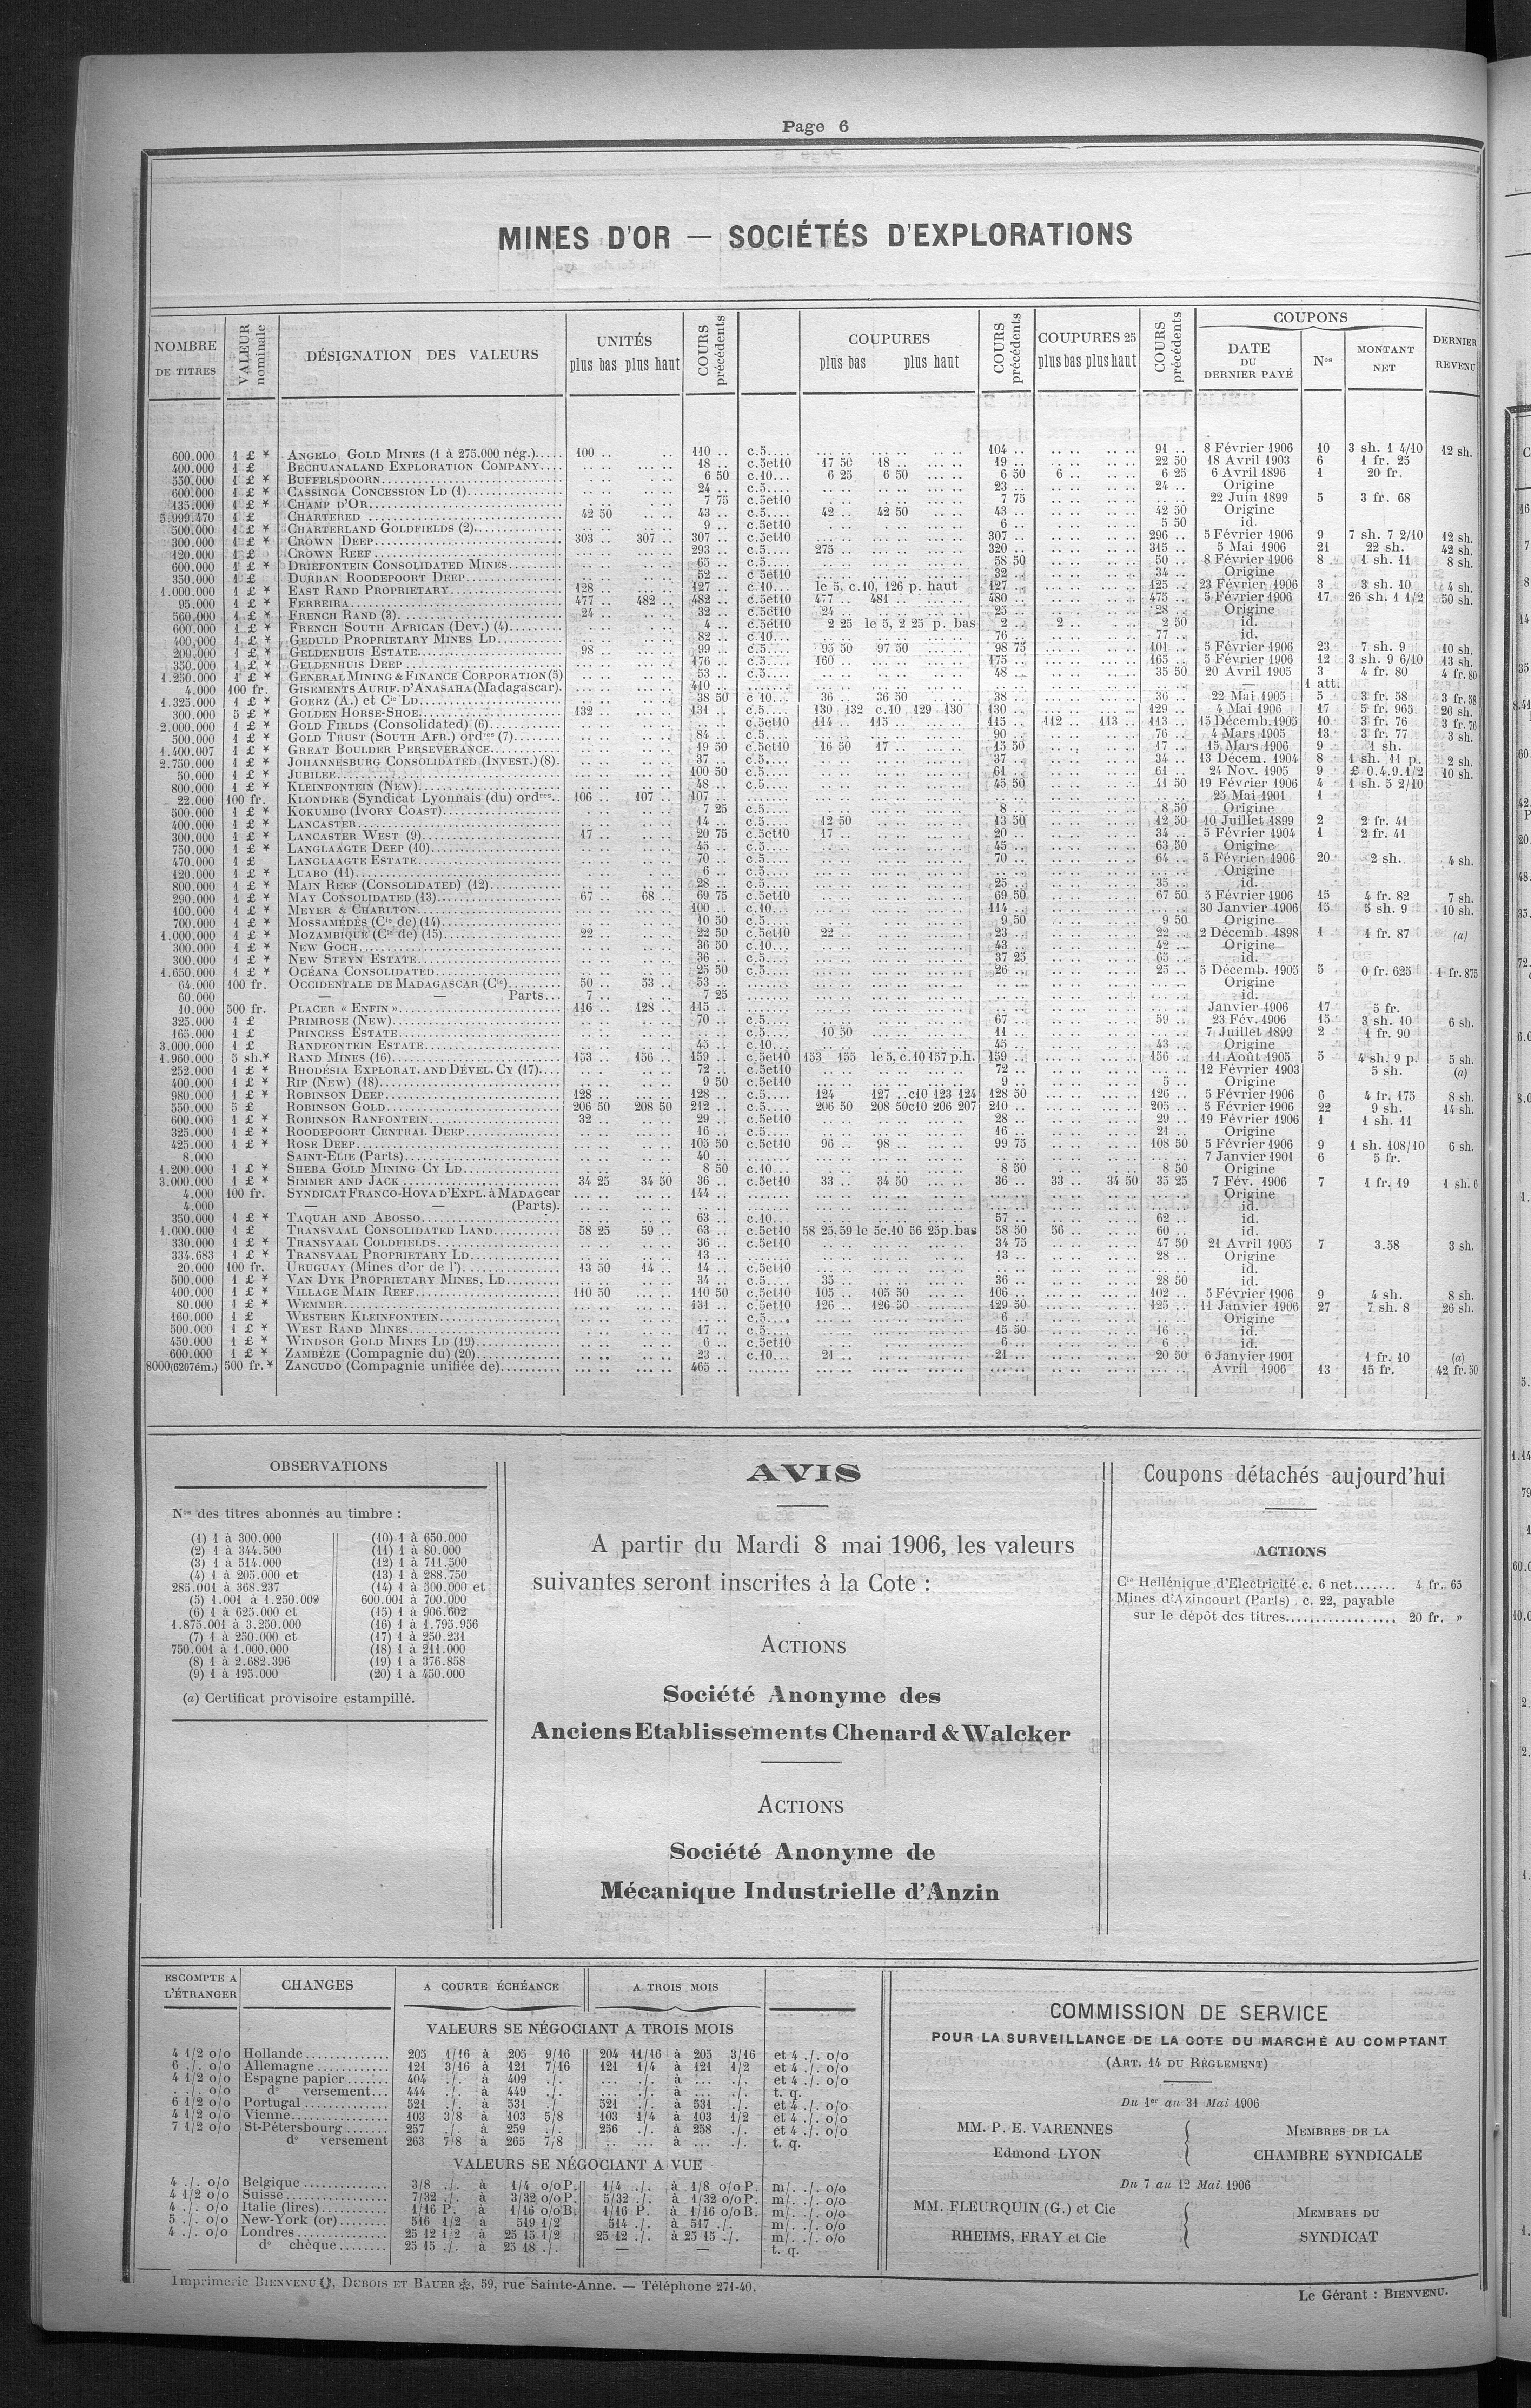 Page 6
MINES D'OR — SOCIÉTÉS D'EXPLORATIONS
NOMBRE DE TITRES | VALEUR nominale | DÉSIGNATION DES VALEURS | UNITÉS plus bas plus haut | COURS précédents | COUPURES plus bas plus haut | COURS précédents | COUPURES 25 plus bas plus haut | COURS précédents | COUPONS DATE DU DERNIER PAYÉ | Nos | MONTANT NET | DERNIER REVENU
600.000 1 £ * ANGELO GOLD MINES (1 à 275.000 nég.) 100 .. 110 .. c.5.... 104 .. 91 .. 8 Février 1906 10 3 sh. 1 4/10 12 sh.
400.000 1 £ BECHUANALAND EXPLORATION COMPANY.... 18 .. c.5et10 17 50 18 .. 19 .. 22 50 18 Avril 1903 6 1 fr. 25
550.000 1 £ * BUFFELSDOORN 6 50 c.10... 6 25 6 50 6 50 6 .. 6 25 6 Avril 1896 1 20 fr.
600.000 1 £ * CASSINGA CONCESSION LD (1) 24 .. c.5.... 23 .. 24 .. Origine
135.000 1 £ * CHAMP D'OR 7 75 c.5et10 7 75 22 Juin 1899 5 3 fr. 68
5.999.470 1 £ CHARTERED 42 50 43 .. c.5.... 42 .. 42 50 43 .. 42 50 Origine
500.000 1 £ * CHARTERLAND GOLDFIELDS (2) 9 .. c.5et10 6 .. 5 50 id.
300.000 1 £ * CROWN DEEP 303 .. 307 .. 307 .. c.5et10 307 .. 296 .. 5 Février 1906 9 7 sh. 7 2/10 12 sh.
120.000 1 £ CROWN REEF 293 .. c.5.... 275 .. 320 .. 315 .. 5 Mai 1906 21 22 sh. 42 sh.
600.000 1 £ * DRIEFONTEIN CONSOLIDATED MINES 65 .. c.5.... 58 50 50 .. 8 Février 1906 8 1 sh. 11 8 sh.
350.000 1 £ DURBAN ROODEPOORT DEEP 52 .. c 5et10 32 .. 34 .. Origine
1.000.000 1 £ * EAST RAND PROPRIETARY 128 .. 127 .. c 10... le 5, c.10, 126 p. haut 127 .. 125 .. 23 Février 1906 3 3 sh. 10 4 sh.
95.000 1 £ * FERREIRA 477 .. 482 .. 482 .. c.5et10 477 .. 481 .. 480 .. 475 .. 5 Février 1906 17 26 sh. 1 1/2 50 sh.
560.000 1 £ * FRENCH RAND (3) 24 .. 32 .. c.5et10 24 .. 25 .. 28 .. Origine
600.000 1 £ * FRENCH SOUTH AFRICAN (Dev.) (4) 4 .. c.5et10 2 25 le 5, 2 25 p. bas 2 .. 2 .. 2 50 id.
400.000 1 £ * GEDULD PROPRIETARY MINES LD 82 .. c 10... 76 .. 77 .. id.
200.000 1 £ * GELDENHUIS ESTATE 98 .. 99 .. c.5.... 95 50 97 50 98 75 101 .. 5 Février 1906 23 7 sh. 9 10 sh.
350.000 1 £ * GELDENHUIS DEEP 176 .. c.5.... 160 .. 175 .. 165 .. 5 Février 1906 12 3 sh. 9 6/10 13 sh.
1.250.000 1 £ * GENERAL MINING & FINANCE CORPORATION (5) 53 .. c.5.... 48 .. 35 50 20 Avril 1905 3 4 fr. 80 4 fr. 80
4.000 100 fr. GISEMENTS AURIF. D'ANASAHA (Madagascar). 410 .. — 1 att.
1.325.000 1 £ * GOERZ (A.) et Cie LD 38 50 c 10... 36 .. 36 50 38 .. 36 .. 22 Mai 1905 5 3 fr. 58 3 fr. 58
300.000 5 £ * GOLDEN HORSE-SHOE 132 .. 131 .. c.5.... 130 132 c.10 129 130 130 .. 129 .. 4 Mai 1906 17 5 fr. 965 26 sh.
2.000.000 1 £ * GOLD FIELDS (Consolidated) (6) c.5et10 114 .. 115 .. 115 .. 112 .. 113 .. 113 .. 15 Décemb. 1905 10 3 fr. 76 3 fr. 76
500.000 1 £ * GOLD TRUST (SOUTH AFR.) ordres (7) 84 .. c.5.... 90 .. 76 .. 4 Mars 1905 13 3 fr. 77 3 sh.
1.400.007 1 £ * GREAT BOULDER PERSEVERANCE 19 50 c.5et10 16 50 17 .. 15 50 17 .. 15 Mars 1906 9 1 sh.
2.750.000 1 £ * JOHANNESBURG CONSOLIDATED (INVEST.) (8). 37 .. c.5.... 37 .. 34 .. 13 Décem. 1904 8 1 sh. 11 p. 2 sh.
50.000 1 £ * JUBILEE 100 50 c.5.... 61 .. 61 .. 24 Nov. 1905 9 £ 0.4.9.1/2 10 sh.
800.000 1 £ * KLEINFONTEIN (NEW) 48 .. c.5.... 45 50 41 50 19 Février 1906 4 1 sh. 5 2/10
22.000 100 fr. KLONDIKE (Syndicat Lyonnais (du) ordres.. 106 .. 107 .. 107 .. 25 Mai 1901 1
500.000 1 £ * KOKUMBO (IVORY COAST) 7 25 c.5.... 8 .. 8 50 Origine
400.000 1 £ * LANCASTER 14 .. c.5.... 12 50 13 50 12 50 10 Juillet 1899 2 2 fr. 41
300.000 1 £ * LANCASTER WEST (9) 17 .. 20 75 c.5et10 17 .. 20 .. 34 .. 5 Février 1904 1 2 fr. 41
750.000 1 £ * LANGLAAGTE DEEP (10) 45 .. c.5.... 45 .. 63 50 Origine
470.000 1 £ LANGLAAGTE ESTATE 70 .. c.5.... 70 .. 64 .. 5 Février 1906 20 2 sh. 4 sh.
120.000 1 £ * LUABO (11) 6 .. c.5.... Origine
800.000 1 £ * MAIN REEF (CONSOLIDATED) (12) 28 .. c.5.... 25 .. 35 .. id.
290.000 1 £ * MAY CONSOLIDATED (13) 67 .. 68 .. 69 75 c.5et10 69 50 67 50 5 Février 1906 15 4 fr. 82 7 sh.
100.000 1 £ * MEYER & CHARLTON 100 .. c.10... 114 .. 30 Janvier 1906 15 5 sh. 9 10 sh.
700.000 1 £ * MOSSAMÉDES (Cie de) (14) 10 50 c.5.... 9 50 9 50 Origine
1.000.000 1 £ * MOZAMBIQUE (Cie de) (15) 22 .. 22 50 c.5et10 22 .. 23 .. 22 .. 2 Décemb. 1898 1 1 fr. 87 (a)
300.000 1 £ * NEW GOCH 36 50 c.10... 43 .. 42 .. Origine
300.000 1 £ * NEW STEYN ESTATE 36 .. c.5.... 37 25 65 .. id.
1.650.000 1 £ * OCÉANA CONSOLIDATED 25 50 c.5.... 26 .. 25 .. 5 Décemb. 1905 5 0 fr. 625 1 fr. 875
64.000 100 fr. OCCIDENTALE DE MADAGASCAR (Cie) 50 .. 53 .. 53 .. Origine
60.000 — — Parts... 7 .. 7 25 id.
10.000 500 fr. PLACER « ENFIN » 116 .. 128 .. 115 .. Janvier 1906 17 5 fr.
325.000 1 £ PRIMROSE (NEW) 70 .. c.5.... 67 .. 59 .. 23 Fév. 1906 15 3 sh. 10 6 sh.
165.000 1 £ PRINCESS ESTATE c.5.... 10 50 11 .. 7 Juillet 1899 2 1 fr. 90
3.000.000 1 £ RANDFONTEIN ESTATE 45 .. c.10... 45 .. 43 .. Origine
1.960.000 5 sh.* RAND MINES (16) 153 .. 156 .. 159 .. c.5et10 153 155 le 5, c.10 157 p.h. 159 .. 156 .. 11 Août 1905 5 4 sh. 9 p. 5 sh.
252.000 1 £ * RHODÉSIA EXPLORAT. AND DÉVEL. CY (17).... 72 .. c.5et10 72 .. 12 Février 1903 5 sh. (a)
400.000 1 £ * RIP (NEW) (18) 9 50 c.5et10 9 .. 5 .. Origine
980.000 1 £ * ROBINSON DEEP 128 .. 128 .. c.5.... 124 127 .. c10 123 124 128 50 126 .. 5 Février 1906 6 4 fr. 175 8 sh.
550.000 5 £ ROBINSON GOLD 206 50 208 50 212 .. c.5.... 206 50 208 50c10 206 207 210 .. 205 .. 5 Février 1906 22 9 sh. 14 sh.
600.000 1 £ * ROBINSON RANFONTEIN 32 .. 29 .. c.5et10 28 .. 29 .. 19 Février 1906 1 1 sh. 11
325.000 1 £ * ROODEPOORT CENTRAL DEEP 16 .. c.5.... 16 .. 21 .. Origine
425.000 1 £ * ROSE DEEP 105 50 c.5et10 96 .. 98 .. 99 75 108 50 5 Février 1906 9 1 sh. 108/10 6 sh.
8.000 SAINT-ELIE (Parts) 40 .. 7 Janvier 1901 6 5 fr.
1.200.000 1 £ * SHEBA GOLD MINING CY LD 8 50 c.10... 8 50 8 50 Origine
3.000.000 1 £ * SIMMER AND JACK 34 25 34 50 36 .. c.5et10 33 .. 34 50 36 .. 33 .. 34 50 35 25 7 Fév. 1906 7 1 fr. 19 1 sh. 6
4.000 100 fr. SYNDICAT FRANCO-HOVA D'EXPL. à MADAGcar 144 .. Origine
4.000 — — (Parts). id.
350.000 1 £ * TAQUAH AND ABOSSO 63 .. c.10... 57 .. 62 .. id.
1.000.000 1 £ TRANSVAAL CONSOLIDATED LAND 58 25 59 .. 63 .. c.5et10 58 25,59 le 5c.10 56 25p. bas 58 50 56 .. 60 .. id.
330.000 1 £ * TRANSVAAL COLDFIELDS 36 .. c.5et10 34 75 47 50 21 Avril 1905 7 3.58 3 sh.
334.683 1 £ * TRANSVAAL PROPRIETARY LD 13 .. 13 .. 28 .. Origine
20.000 100 fr. URUGUAY (Mines d'or de l') 13 50 14 .. 14 .. c.5et10 id.
500.000 1 £ * VAN DYK PROPRIETARY MINES, LD 34 .. c.5.... 35 .. 36 .. 28 50 id.
400.000 1 £ * VILLAGE MAIN REEF 110 50 110 50 c.5et10 105 .. 105 50 106 .. 102 .. 5 Février 1906 9 4 sh. 8 sh.
80.000 1 £ * WEMMER 131 .. c.5et10 126 .. 126 50 129 50 125 .. 11 Janvier 1906 27 7 sh. 8 26 sh.
160.000 1 £ WESTERN KLEINFONTEIN c.5.... 6 .. Origine
500.000 1 £ * WEST RAND MINES 17 .. c.5.... 15 50 16 .. id.
450.000 1 £ * WINDSOR GOLD MINES LD (19) 6 .. c.5et10 6 .. 6 .. id.
600.000 1 £ * ZAMBÈZE (Compagnie du) (20) 23 .. c.10... 21 .. 21 .. 20 50 6 Janvier 1901 1 fr. 10 (a)
8000(6207ém.) 500 fr.* ZANCUDO (Compagnie unifiée de) 465 .. Avril 1906 13 15 fr. 42 fr. 50
OBSERVATIONS
Nos des titres abonnés au timbre :
(1) 1 à 300.000
(2) 1 à 344.500
(3) 1 à 514.000
(4) 1 à 205.000 et
285.001 à 368.237
(5) 1.001 à 1.250.009
(6) 1 à 625.000 et
1.875.001 à 3.250.000
(7) 1 à 250.000 et
750.001 à 1.000.000
(8) 1 à 2.682.396
(9) 1 à 195.000
(10) 1 à 650.000
(11) 1 à 80.000
(12) 1 à 711.500
(13) 1 à 288.750
(14) 1 à 500.000 et
600.001 à 700.000
(15) 1 à 906.602
(16) 1 à 1.795.956
(17) 1 à 250.231
(18) 1 à 211.000
(19) 1 à 376.858
(20) 1 à 450.000
(a) Certificat provisoire estampillé.
AVIS
A partir du Mardi 8 mai 1906, les valeurs
suivantes seront inscrites à la Cote :
ACTIONS
Société Anonyme des
Anciens Etablissements Chenard & Walcker
ACTIONS
Société Anonyme de
Mécanique Industrielle d'Anzin
Coupons détachés aujourd'hui
ACTIONS
Cie Hellénique d'Electricité c. 6 net....... 4 fr. 65
Mines d'Azincourt (Parts) c. 22, payable
sur le dépôt des titres................ 20 fr. »
ESCOMPTE A L'ÉTRANGER | CHANGES | A COURTE ÉCHÉANCE | A TROIS MOIS
VALEURS SE NÉGOCIANT A TROIS MOIS
4 1/2 o/o Hollande 205 1/16 à 205 9/16 204 11/16 à 205 3/16 et 4 ./. o/o
6 ./. o/o Allemagne 121 3/16 à 121 7/16 121 1/4 à 121 1/2 et 4 ./. o/o
4 1/2 o/o Espagne papier 404 ./. à 409 ./. ... ./. à ... ./. et 4 ./. o/o
. ./. o/o do versement... 444 ./. à 449 ./. ... ./. à ... ./. t. q.
6 1/2 o/o Portugal 521 ./. à 531 ./ 521 ./. à 531 ./. et 4 ./. o/o
4 1/2 o/o Vienne 103 3/8 à 103 5/8 103 1/4 à 103 1/2 et 4 ./. o/o
7 1/2 o/o St-Pétersbourg 257 ./. à 259 ./. 256 ./. à 258 ./. et 4 ./. o/o
do versement 263 7/8 à 265 7/8 .. ... à ... ./. t. q.
VALEURS SE NÉGOCIANT A VUE
4 ./. o/o Belgique 3/8 ./. à 1/4 o/o P. 1/4 ./. à 1/8 o/o P. m/. ./. o/o
4 1/2 o/o Suisse 7/32 ./. à 3/32 o/o P. 5/32 ./. à 1/32 o/o P. m/. ./. o/o
4 ./. o/o Italie (lires) 1/16 P. à 1/16 o/o B. 1/16 P. à 1/16 o/o B. m/. ./. o/o
5 ./. o/o New-York (or) 516 1/2 à 519 1/2 514 ./. à 517 ./. m/. ./. o/o
4 ./. o/o Londres 25 12 1/2 à 25 15 1/2 25 12 ./. à 25 15 ./. m/. ./. o/o
do chèque 25 15 ./. à 25 18 ./. — — t. q.
COMMISSION DE SERVICE
POUR LA SURVEILLANCE DE LA COTE DU MARCHÉ AU COMPTANT
(ART. 14 DU RÈGLEMENT)
Du 1er au 31 Mai 1906
MM. P. E. VARENNES
Edmond LYON
MEMBRES DE LA
CHAMBRE SYNDICALE
Du 7 au 12 Mai 1906
MM. FLEURQUIN (G.) et Cie
RHEIMS, FRAY et Cie
MEMBRES DU
SYNDICAT
Imprimerie BIENVENU, DUBOIS ET BAUER, 59, rue Sainte-Anne. — Téléphone 271-40.
Le Gérant : BIENVENU.